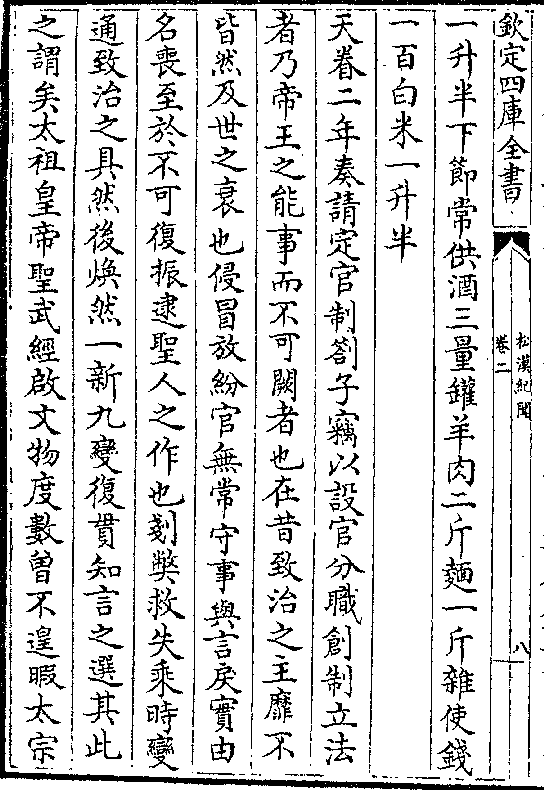 欽定四庫全書
松漠紀聞
卷二
八
一升半下節常供酒三量罐羊肉二斤麵一斤雜使錢
一百白米一升半
天眷二年奏請定官制劄子竊以設官分職創制立法
者乃帝王之能事而不可闕者也在昔致治之主靡不
皆然及世之衰也侵冒放紛官無常守事與言戾實由
名喪至於不可復振逮聖人之作也剗弊救失乘時變
通致治之具然後煥然一新九變復貫知言之選其此
之謂矣太祖皇帝聖武經啟文物度數曾不遑暇太宗